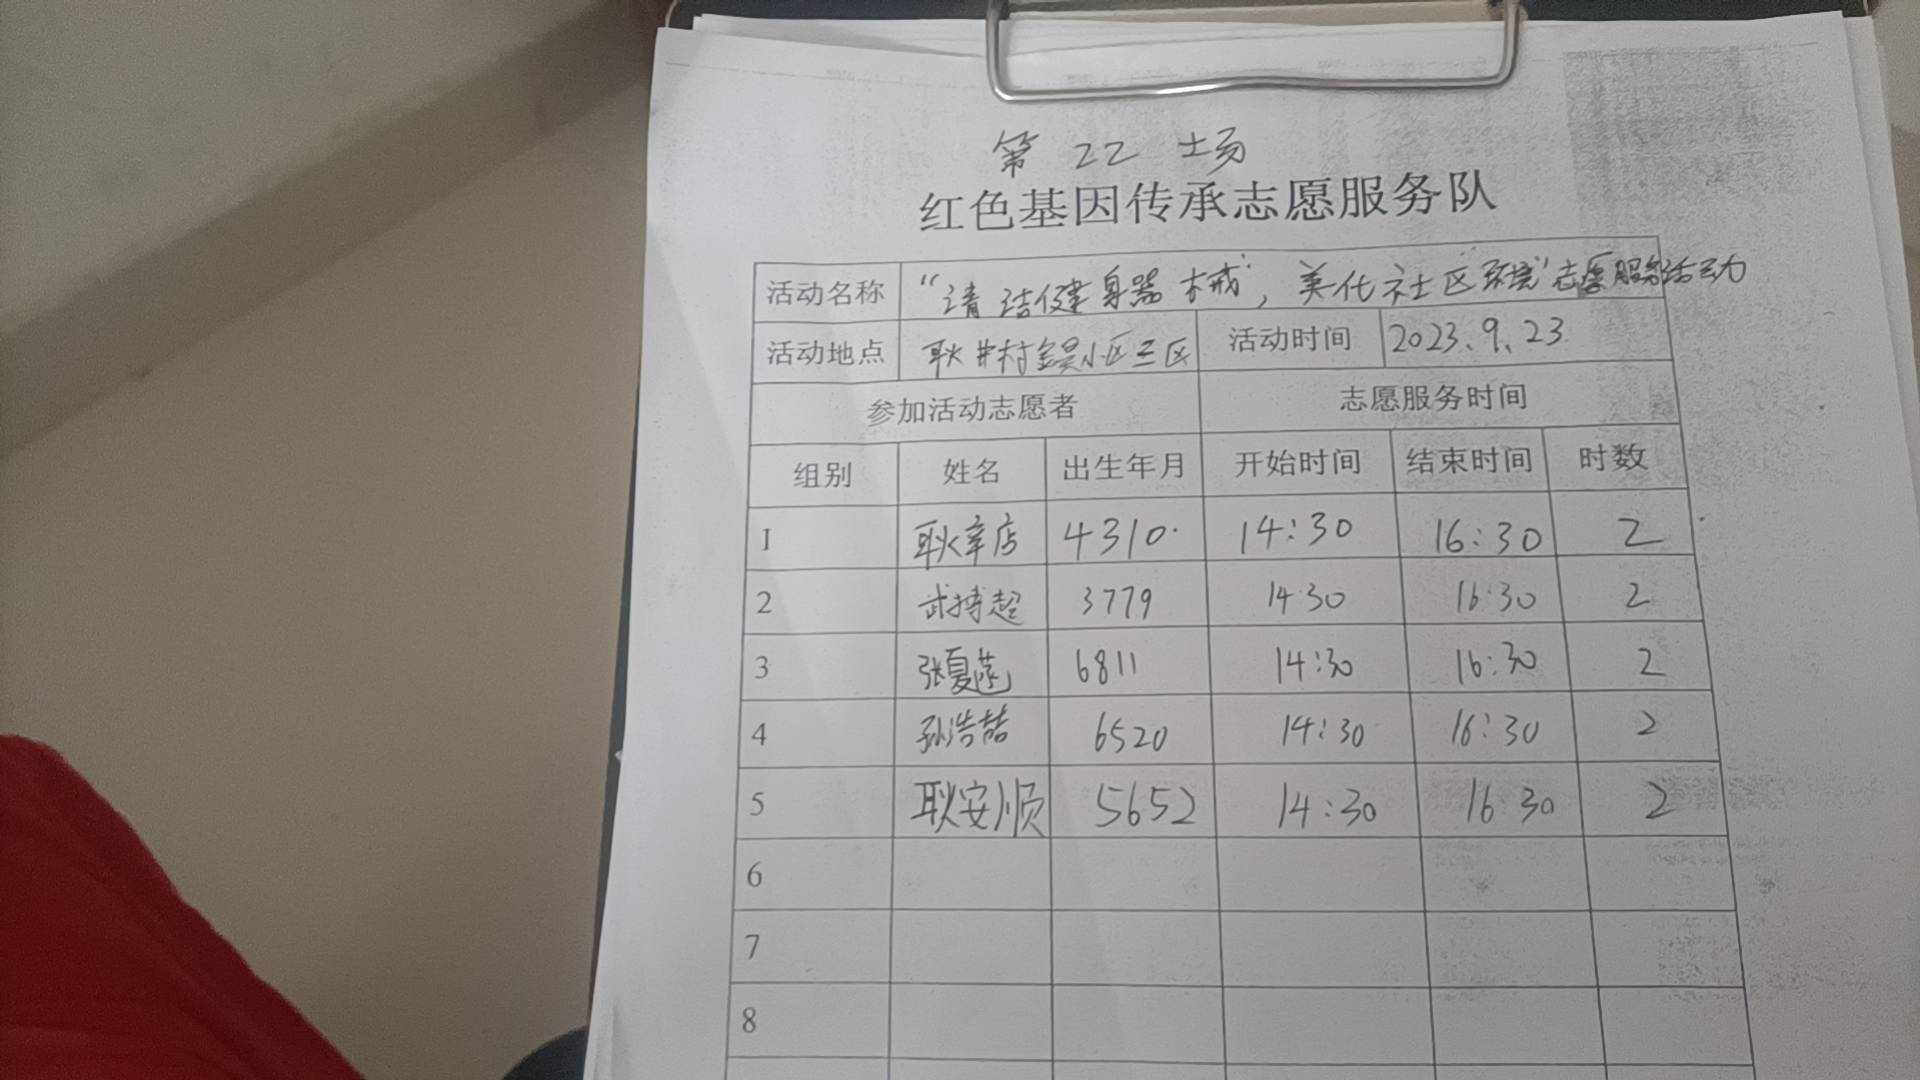 第 22 场
红色基因传承志愿服务队
活动名称 “请洁健身器械”,美化社区环境”志愿服务活动
活动地点 耿井村金昊小区三区 活动时间 2023、9、23
参加活动志愿者 志愿服务时间
组别 姓名 出生年月 开始时间 结束时间 时数
1 耿辛店 4310 14:30 16:30 2
2 武搏超 3779 14:30 16:30 2
3 张夏莲 6811 14:30 16:30 2
4 孙浩喆 6520 14:30 16:30 2
5 耿安顺 5652 14:30 16:30 2
6
7
8